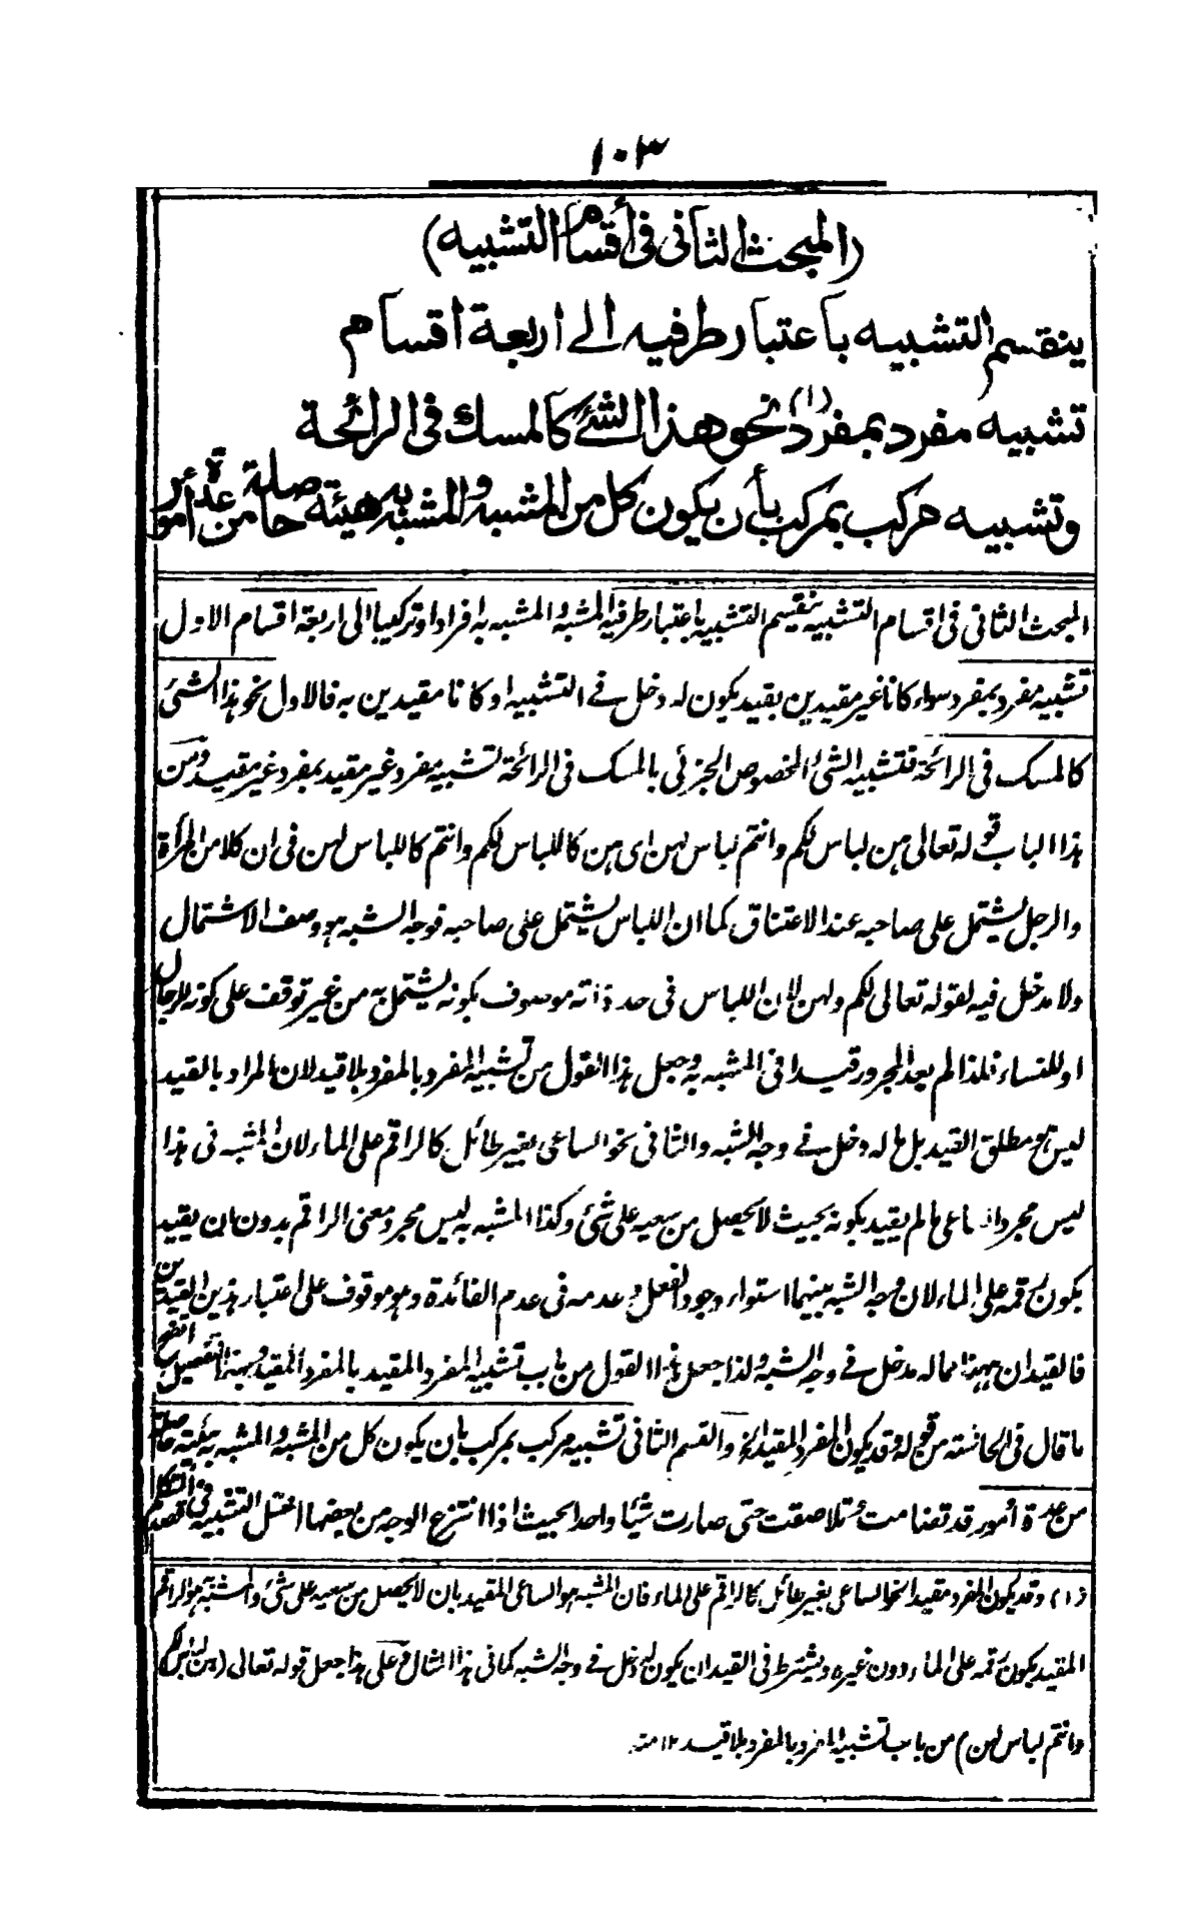 ١٠٣
(المبحث الثانى فى أقسام التشبيه)
ينقسم التشبيه باعتبار طرفيه الى اربعة اقسام
تشبيه مفرد بمفرد (١) نحو هذا الشئ كالمسك فى الرائحة
وتشبيه مركب بمركب بأن يكون كل من المشبه والمشبه به هيئة حاصلة من عدة أمور
المبحث الثانى فى اقسام التشبيه ينقسم التشبيه باعتبار طرفيه المشبه والمشبه به افرادا وتركيبا الى اربعة اقسام الاول
تشبيه مفرد بمفرد سواء كانا غير مقيدين بقيد يكون له دخل فى التشبيه او كانا مقيدين به فالاول نحو هذا الشئ
كالمسك فى الرائحة فتشبيه الشئ المخصوص الجزئى بالمسك فى الرائحة تشبيه مفرد غير مقيد بمفرد غير مقيد ومن
هذا الباب قوله تعالى هن لباس لكم وانتم لباس لهن اى هن كاللباس لكم وانتم كاللباس لهن فى ان كلا من المرأة
والرجل يشتمل على صاحبه عند الاعتناق كما ان اللباس يشتمل على صاحبه فوجه الشبه هو وصف الاشتمال
ولا مدخل فيه لقوله تعالى لكم ولهن لان اللباس فى حد ذاته موصوف بكونه يشتمل به من غير توقف على كونه للرجال
او للنساء فلذا لم يعد المجرور قيدا فى المشبه به وجعل هذا القول من تشبيه المفرد بالمفرد بلا قيد لان المراد بالقيد
ليس هو مطلق القيد بل ما له دخل فى وجه الشبه والثانى نحو الساعى بغير طائل كالراقم على الماء لان المشبه فى هذا
ليس مجرد الساعى ما لم يقيد بكونه بحيث لا يحصل من سعيه على شئ وكذا المشبه به ليس مجرد معنى الراقم بدون ان يقيد
بكون رقمه على الماء لان وجه الشبه بينهما استواء وجود الفعل وعدمه فى عدم الفائدة وهو موقوف على اعتبار هذين القيدين
فالقيدان ههنا مما له مدخل فى وجه الشبه ولذا جعل هذا القول من باب تشبيه المفرد المقيد بالمفرد المقيد وبهذا التفصيل اتضح
ما قال فى الحاشية من قوله وقد يكون المفرد المقيد الخ والقسم الثانى تشبيه مركب بمركب بان يكون كل من المشبه والمشبه به هيئة حاصلة
من عدة أمور قد تضامت وتلاصقت حتى صارت شيئا واحدا بحيث اذا انتزع الوجه من بعضها اختل التشبيه فى قصد المتكلم
(١) وقد يكون المفرد مقيدا نحو الساعى بغير طائل كالراقم على الماء فان المشبه هو الساعى المقيد بان لا يحصل من سعيه على شئ والمشبه به هو الراقم
المقيد بكون رقمه على الماء دون غيره ويشترط فى القيد ان يكون له دخل فى وجه الشبه كما فى هذا المثال وعلى هذا جعل قوله تعالى (هن لباس لكم
وانتم لباس لهن) من باب تشبيه المفرد بالمفرد بلا قيد ١٢ منه